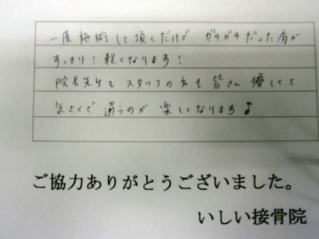 一度施術して頂くだけで ガチガチだった肩が
すっきり!軽くなります!
院長先生もスタッフの方も皆さん優しくて
気さくで通うのが楽しくなります♪
ご協力ありがとうございました。
いしい接骨院